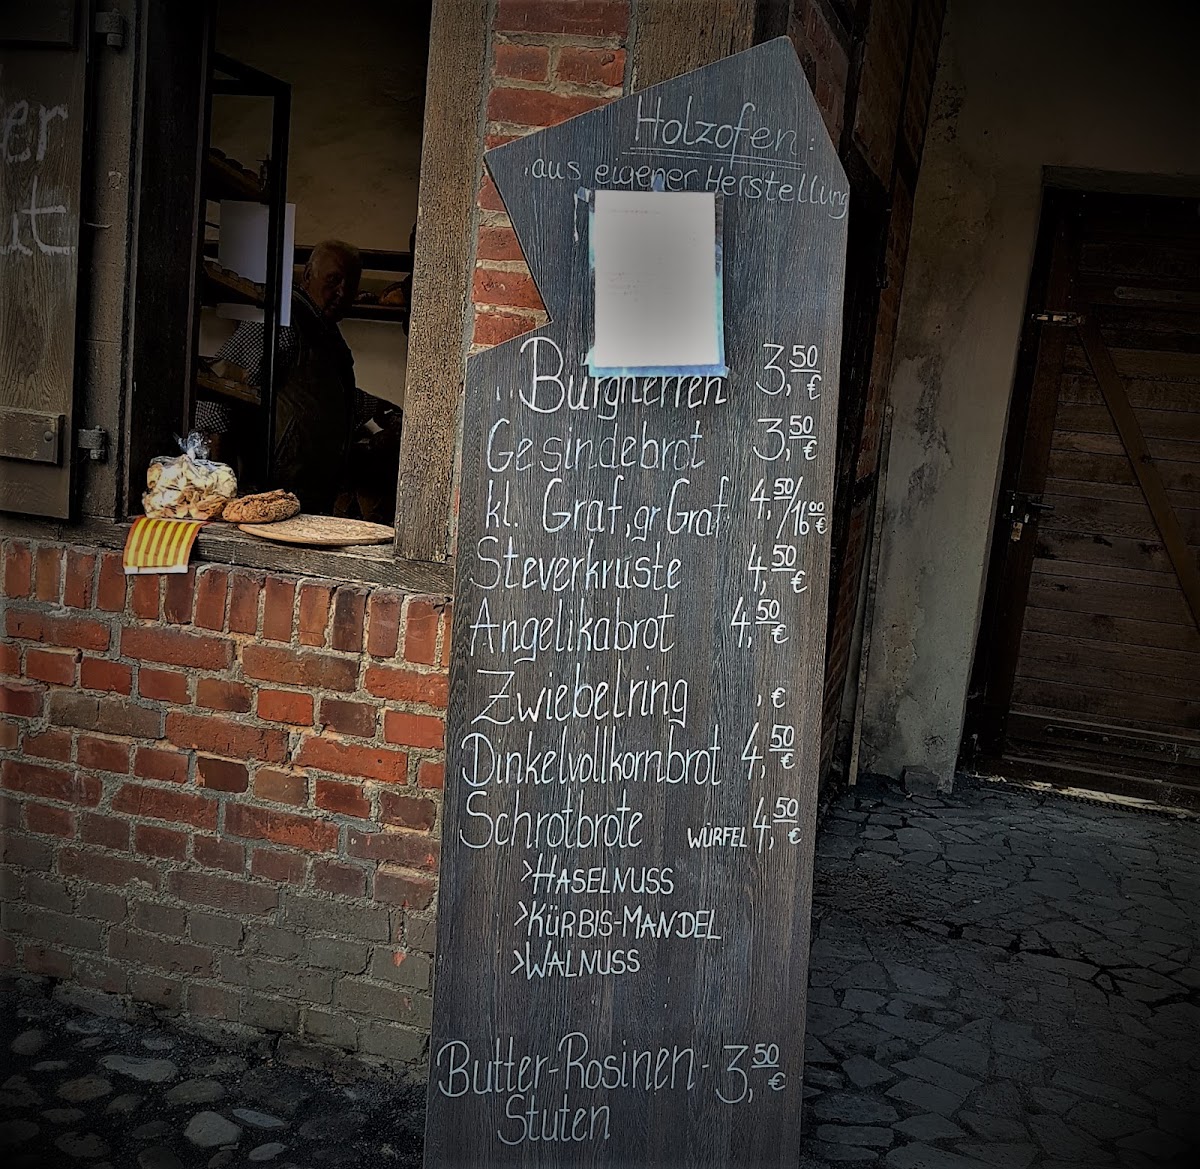 er
ut
Holzofen:
aus eigener Herstellung
Burgherren 3,50 €
Gesindebrot 3,50 €
kl. Graf, gr Graf 4,50/16,00 €
Steverkruste 4,50 €
Angelikabrot 4,50 €
Zwiebelring , €
Dinkelvollkornbrot 4,50 €
Schrotbrote WÜRFEL 4,50 €
>HASELNUSS
>KÜRBIS-MANDEL
>WALNUSS
Butter-Rosinen- 3,50 €
Stuten